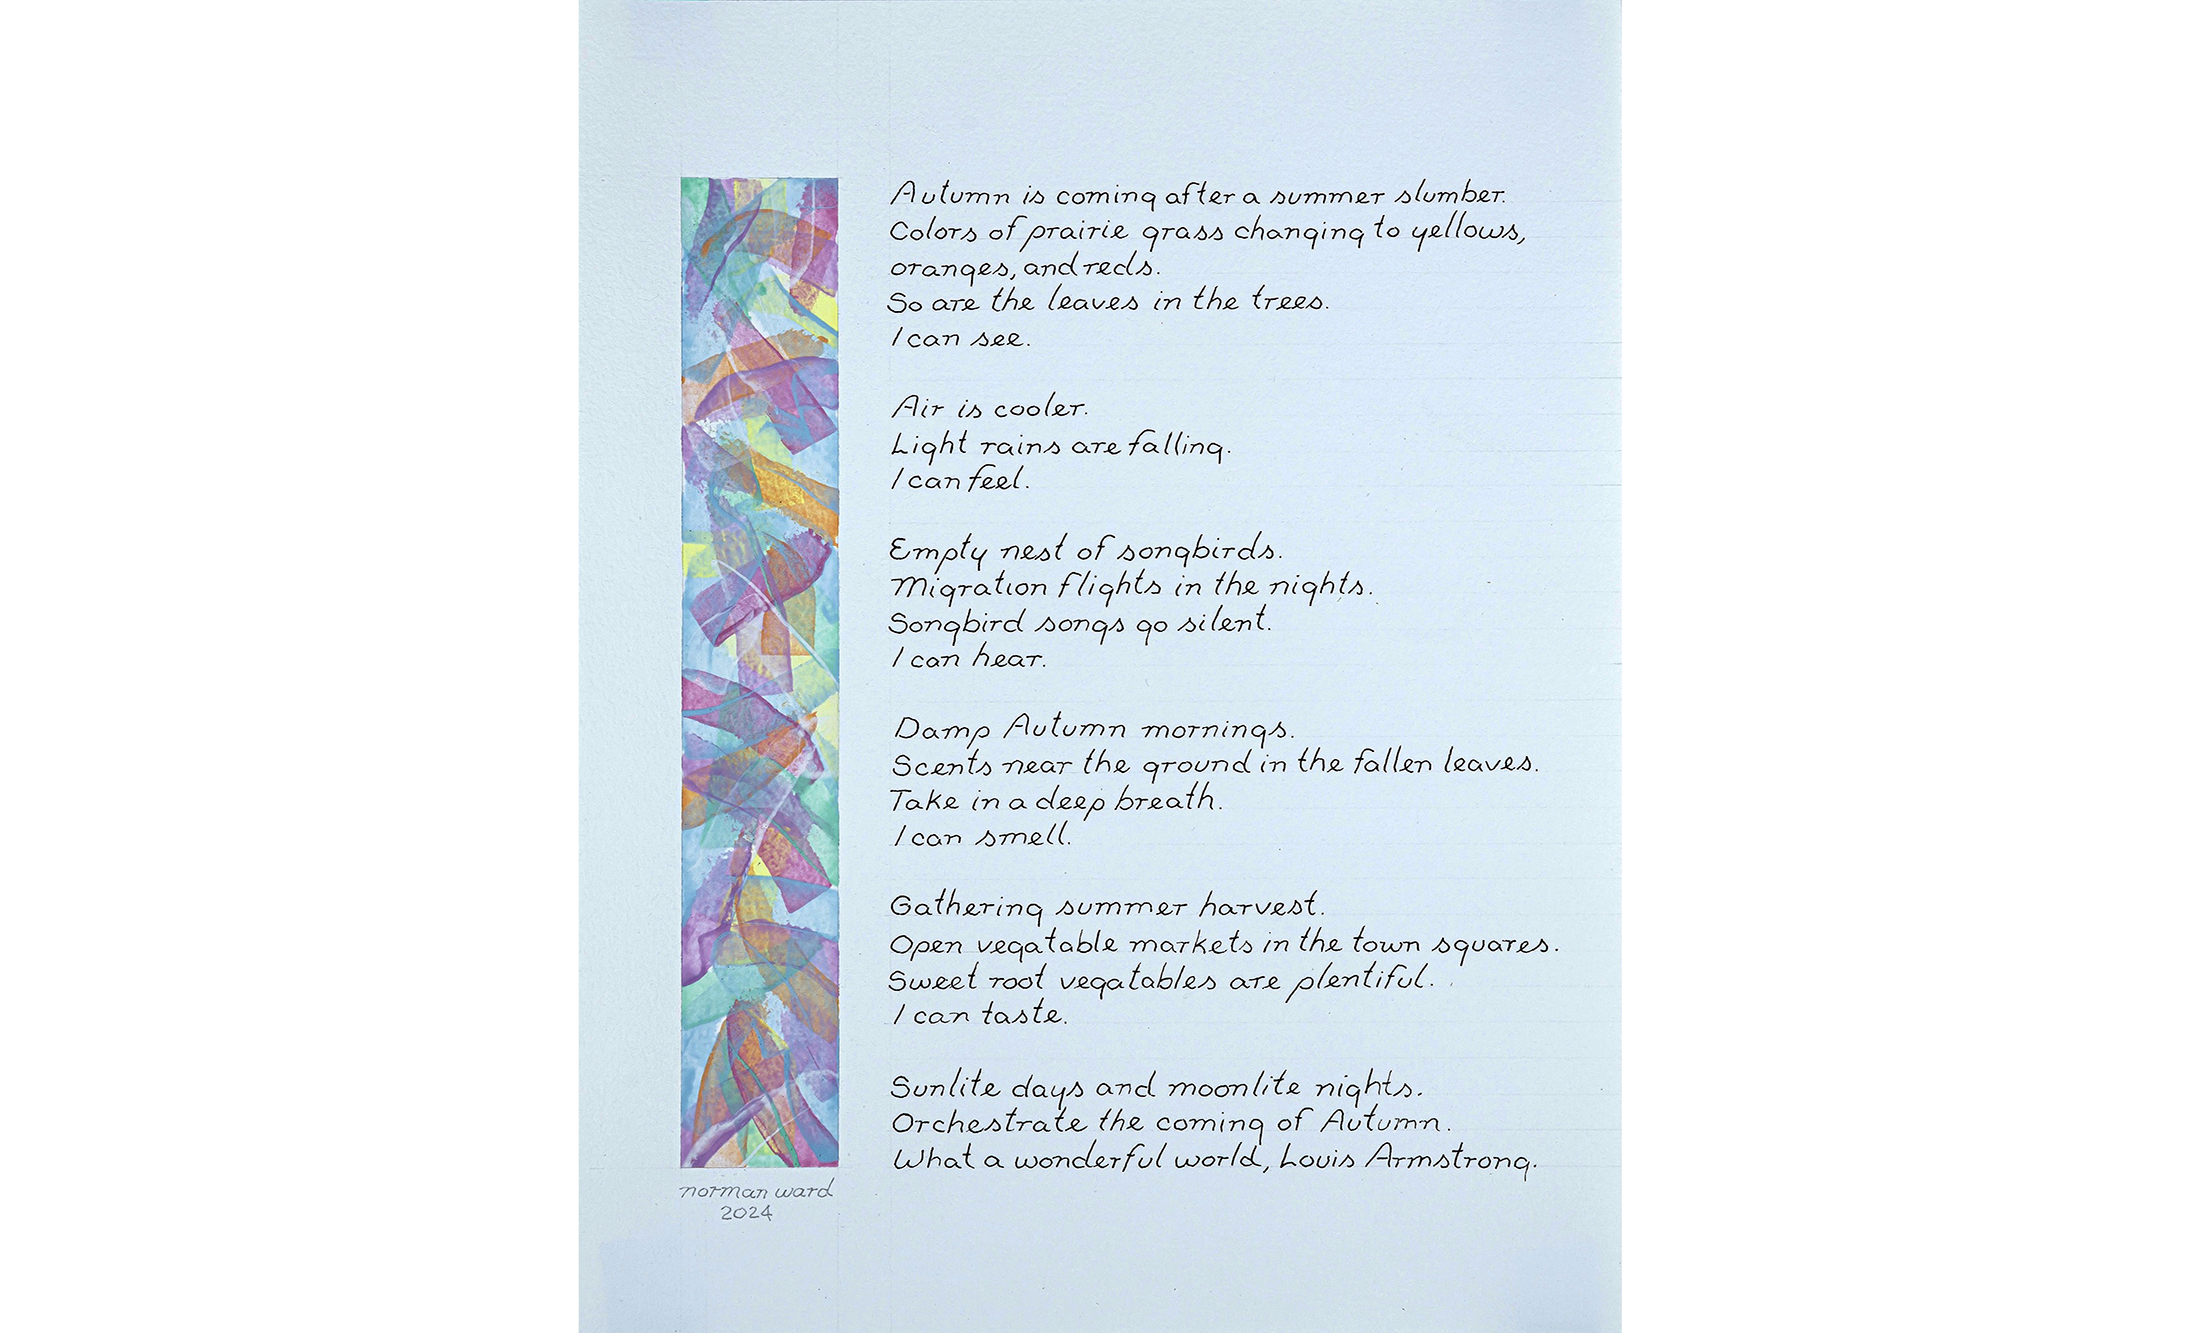 Autumn is coming after a summer slumber.
Colors of prairie grass changing to yellows,
oranges, and reds.
So are the leaves in the trees.
I can see.
Air is cooler.
Light rains are falling.
I can feel.
Empty nest of songbirds.
Migration flights in the nights.
Songbird songs go silent.
I can hear.
Damp Autumn mornings.
Scents near the ground in the fallen leaves.
Take in a deep breath.
I can smell.
Gathering summer harvest.
Open vegatable markets in the town squares.
Sweet root vegatables are plentiful.
I can taste.
Sunlite days and moonlite nights.
Orchestrate the coming of Autumn.
What a wonderful world, Louis Armstrong.
norman ward
2024